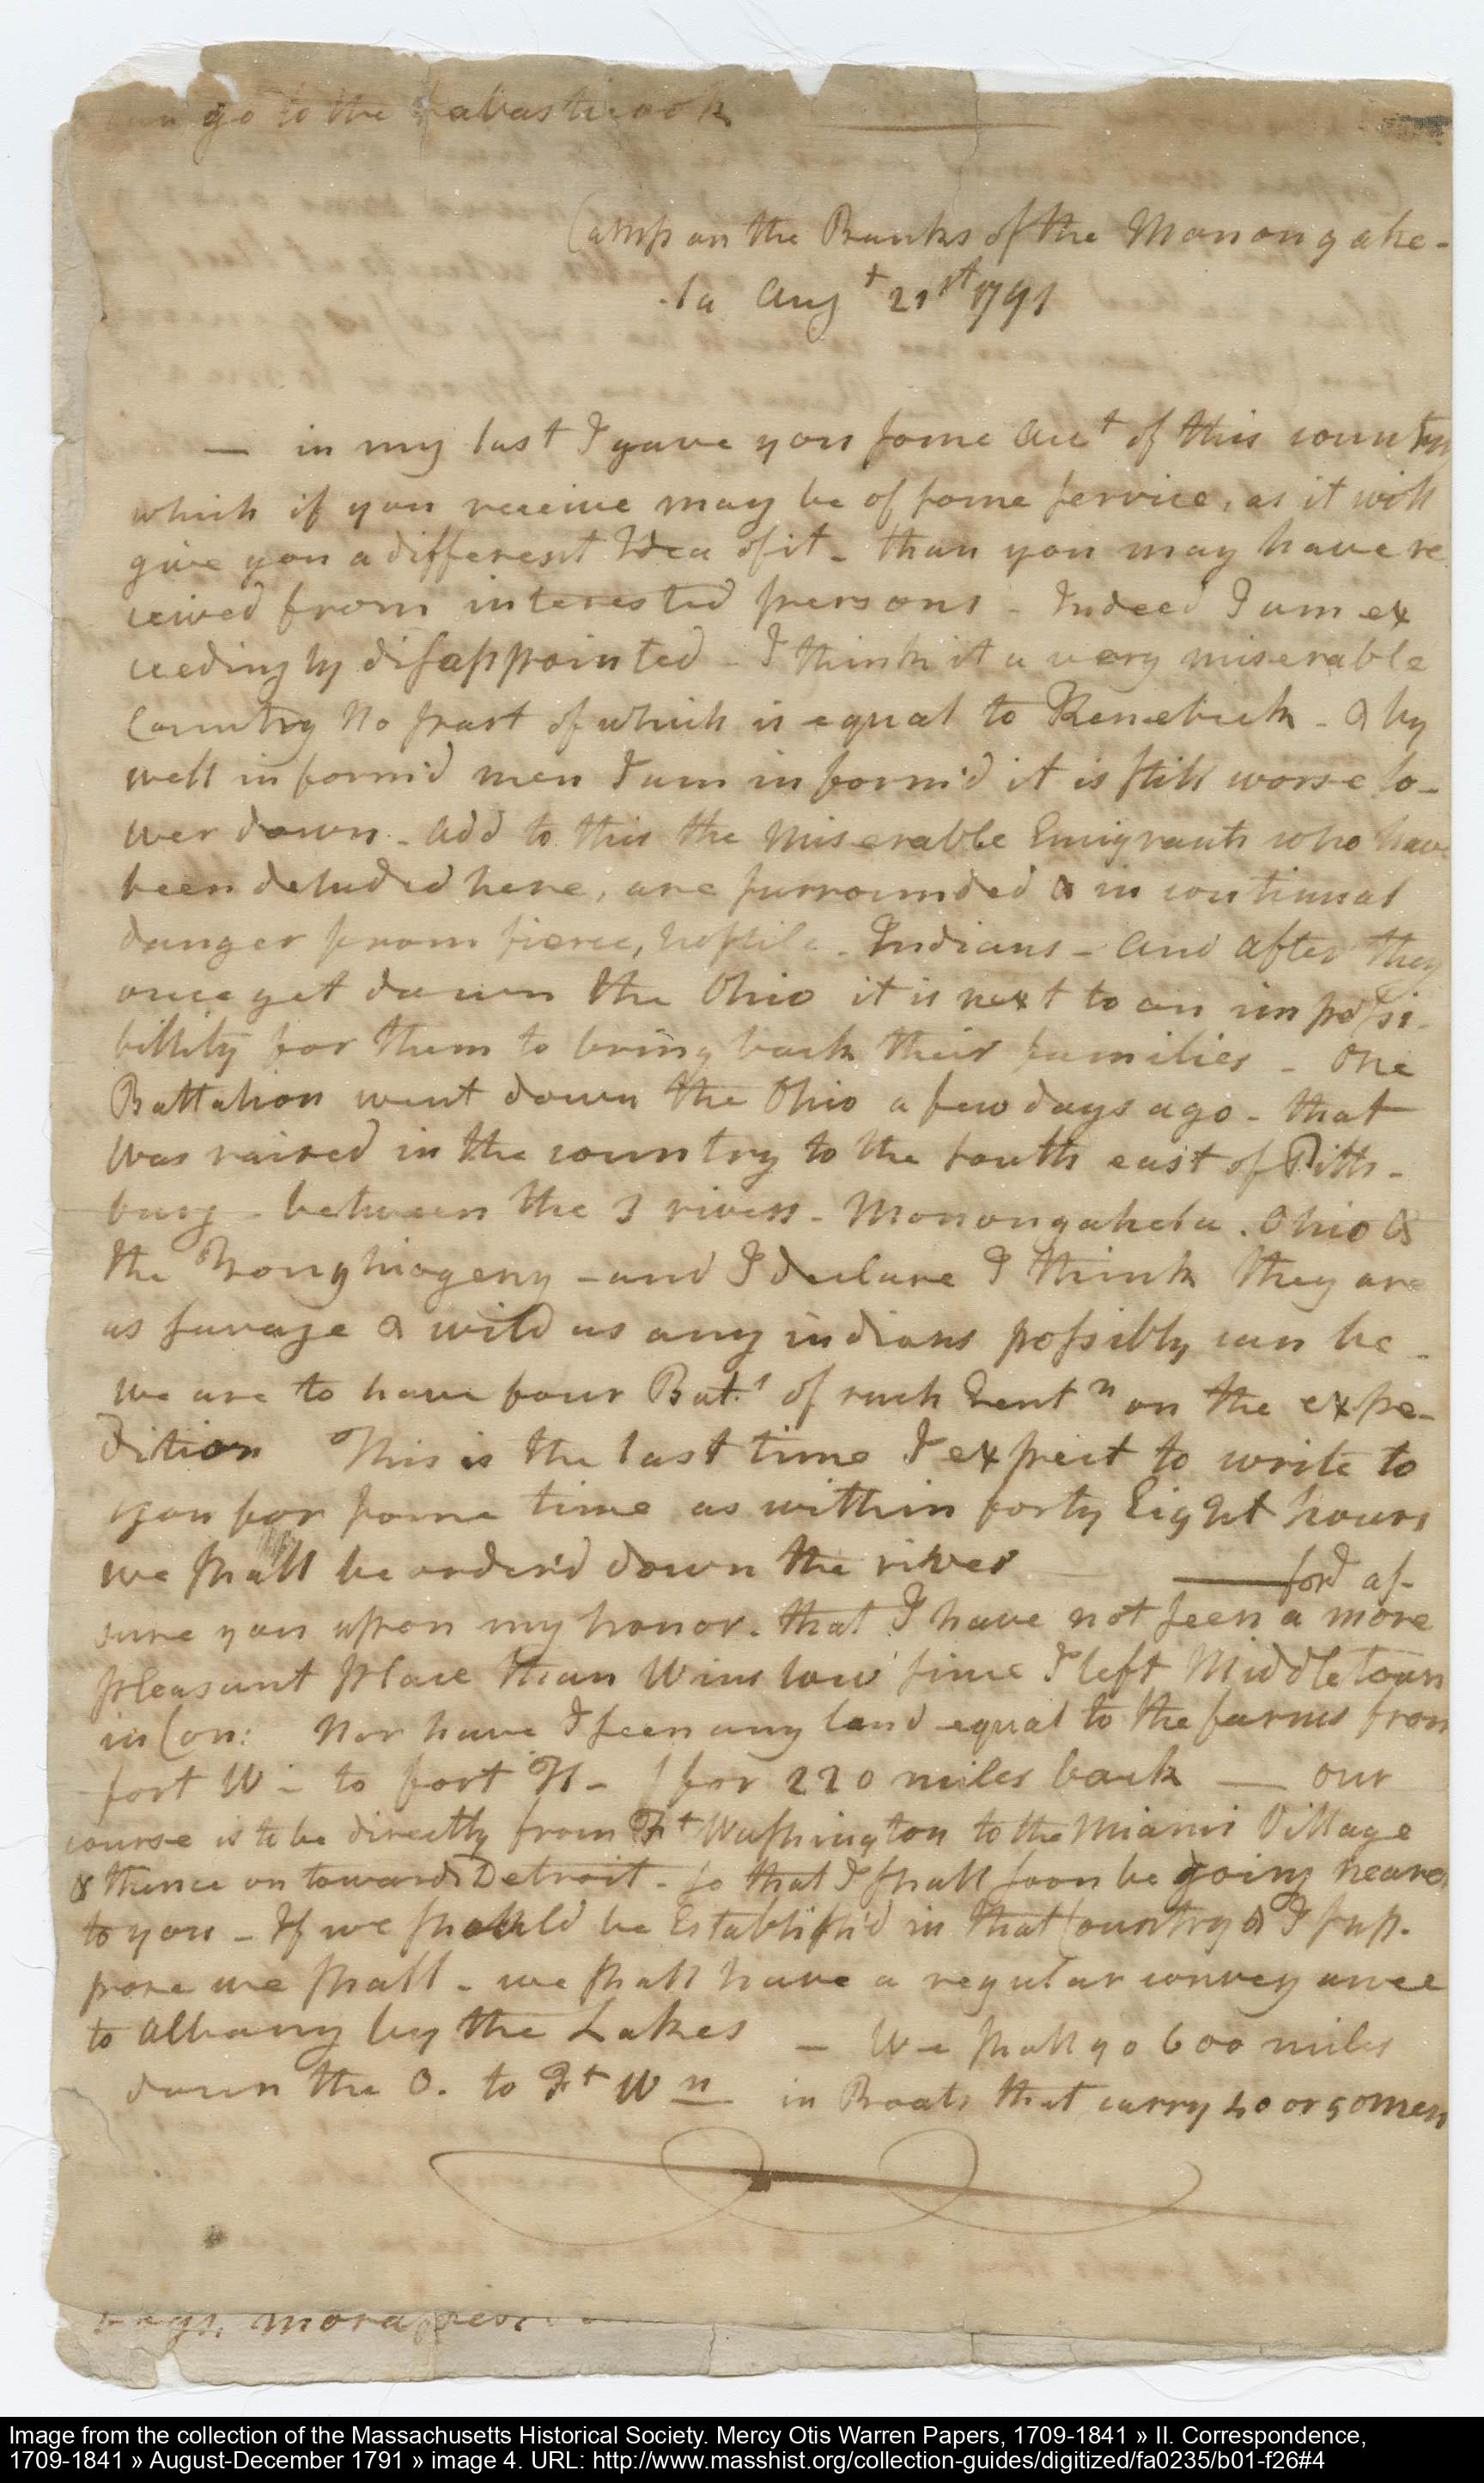 go to the
Camp on the Banks of the Monongahe-
-la Augt 21st 1791
— in my last I gave you some acct of this country
which if you receive may be of some service, as it will
give you a different Idea of it - than you may have re
ceived from interested persons - Indeed I am ex
ceedingly disappointed - I think it a very miserable
Country No part of which is equal to Kenebeck - & by
well inform'd men I am inform'd it is still worse lo-
wer down - add to this the Miserable Emigrants who have
been deluded here, are surrounded & in continual
danger from fierce, hostile - Indians - and after they
once get down the Ohio it is next to an impossi-
billity for them to bring back their families - One
Battalion went down the Ohio a few days ago - that
was raised in the country to the south east of Pitts-
burg - between the 3 rivers - Monongahela. Ohio &
the Youghiogeny - and I declare I think they are
as savage & wild as any indians possibly can be -
we are to have four Bats of such Gentn on the expe-
dition This is the last time I expect to write to
you for some time as within forty Eight hours
we shall be order'd down the river
as-
sure you upon my honor. that I have not seen a more
pleasant place than Winslow since I left Middletown
in Con: Nor have I seen any land equal to the farms from
fort W- to fort H- for 220 miles back — our
course is to be directly from Ft Washington to the Miami Village
& thence on towards Detroit - so that I shall soon be going nearer
to you - If we should be Establish'd in that Country & I sup-
pose we shall - we shall have a regular conveyance
to Albany by the Lakes — We shall go 600 miles
down the O. to Ft Wn in Boats that carry 40 or 50 men
Image from the collection of the Massachusetts Historical Society. Mercy Otis Warren Papers, 1709-1841 » II. Correspondence,
1709-1841 » August-December 1791 » image 4. URL: http://www.masshist.org/collection-guides/digitized/fa0235/b01-f26#4